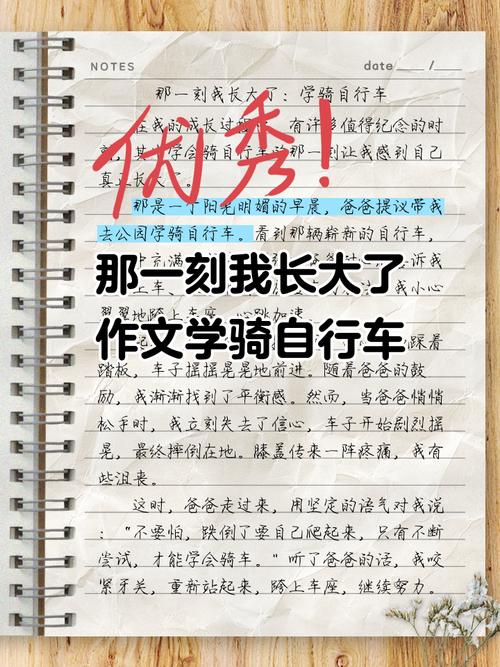 NOTES
date ____ / ____
那一刻我长大了：学骑自行车
优秀！
在我的成长过程，有许多值得纪念的时
刻，其学会骑自行车那一刻让我感到自己
真正长大了。
那是一个阳光明媚的早晨，爸爸提议带我
去公园学骑自行车。看到那辆崭新的自行车，
充满
诉我
那一刻我长大了
上车
我小心
翼翼地跨上车座，心跳加速。
作文学骑自行车
踩着
踏板，车子摇摇晃晃地前进。随着爸爸的鼓
励，我渐渐找到了平衡感。然而，当爸爸悄悄
松手时，我立刻失去了信心，车子开始剧烈摇
晃，最终摔倒在地。膝盖传来一阵疼痛，我有
些沮丧。
这时，爸爸走过来，用坚定的语气对我说
：“不要怕，跌倒了要自己爬起来，只有不断
尝试，才能学会骑车。”听了爸爸的话，我咬
紧牙关，重新站起来，跨上车座，继续努力。